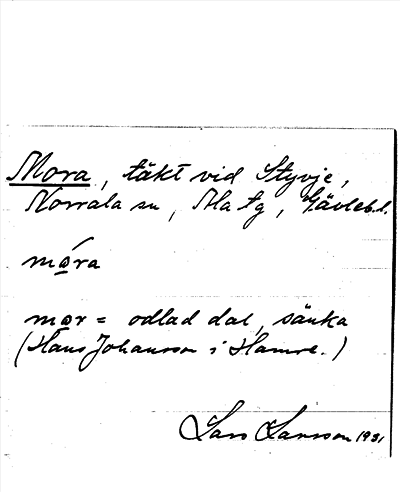 Mora, täkt vid Styvje,
Norrala sn, Ala tg, Gävleb.l.
mo̲ra
mor = odlad dal, sänka
(Hans Johansson i Hamre.)
Lars Larsson 1931